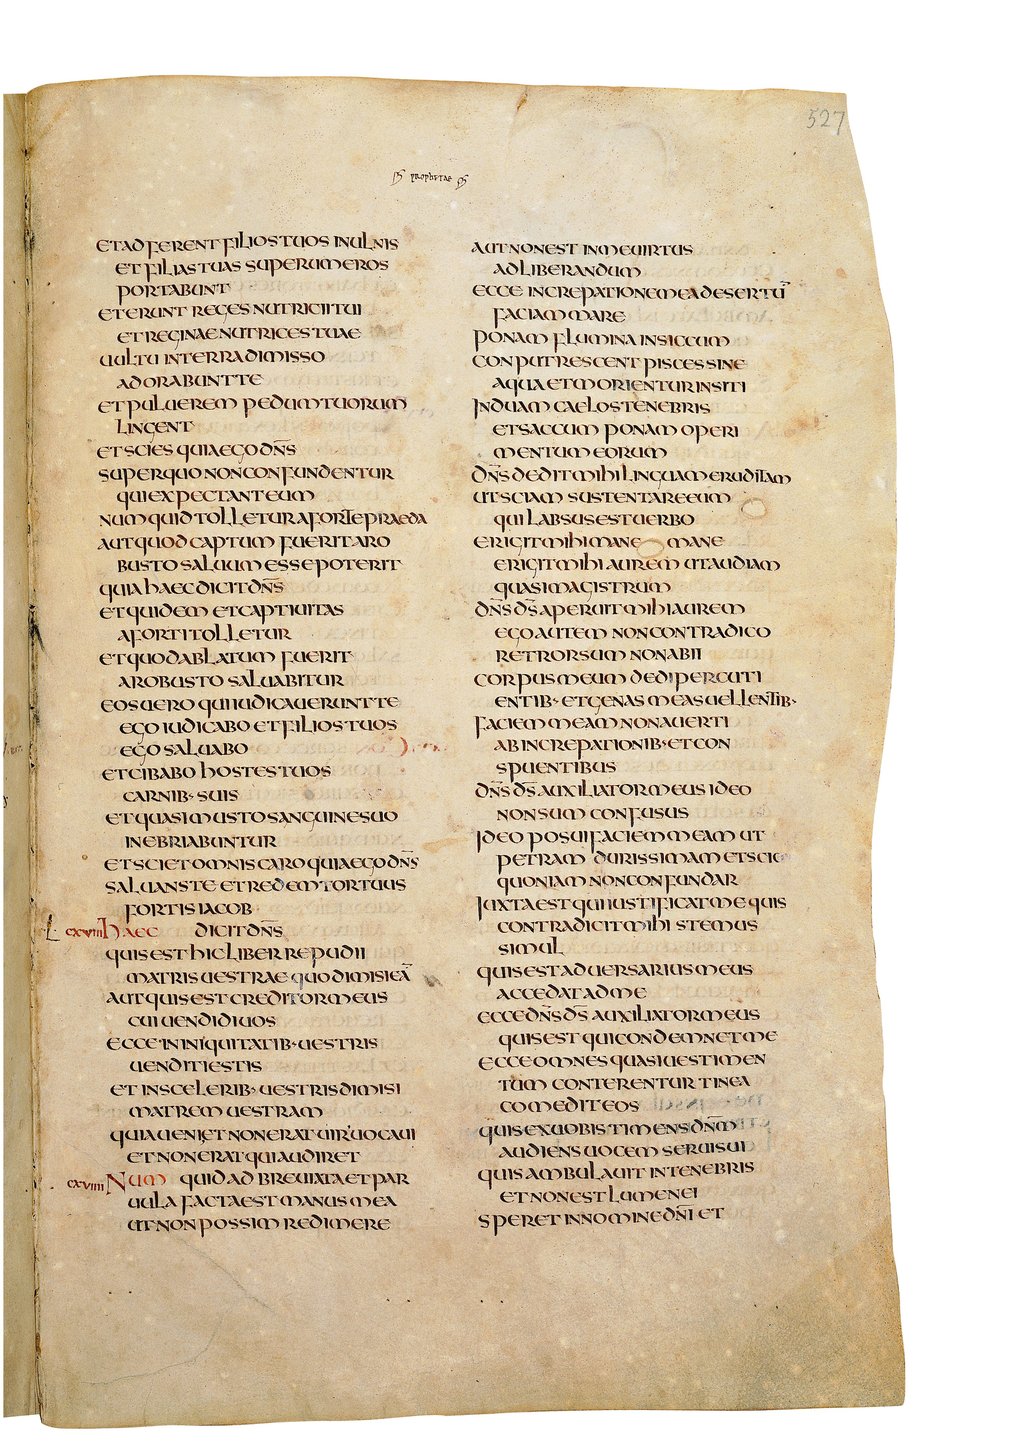 527
PROPHETAE
ETADFERENTFILIOSTUOS INULNIS
ETFILIASTUAS SUPERUMEROS
PORTABUNT
ETERUNT REGES NUTRICIITUI
ETREGINAENUTRICES TUAE
UULTU INTERRADIMISSO
ADORABUNTTE
ETPULUEREM PEDUMTUORUM
LINGENT
ETSCIES QUIAEGODN̄S
SUPERQUO NONCONFUNDENTUR
QUIEXPECTANTEUM
NUMQUIDTOLLETURAFORTEPRAEDA
AUTQUODCAPTUM FUERITARO
BUSTOSALUUM ESSEPOTERIT
QUIAHAECDICITDN̄S
ETQUIDEM ETCAPTIUITAS
AFORTITOLLETUR
ETQUODABLATUM FUERIT
AROBUSTO SALUABITUR
EOSUERO QUIIUDICAUERUNTTE
EGOIUDICABO ETFILIOSTUOS
EGOSALUABO
ETCIBABO HOSTESTUOS
CARNIB· SUIS
ETQUASIMUSTOSANGUINESUO
INEBRIABUNTUR
ETSCIETOMNISCARO QUIAEGODN̄S
SALUANSTE ETREDEMTORTUUS
FORTISIACOB
CXVIII HAEC DICITDN̄S
QUISESTHICLIBERREPUDII
MATRISUESTRAE QUODIMISIEĀ
AUTQUISESTCREDITORMEUS
CUIUENDIDIUOS
ECCEININIQUITATIB·UESTRIS
UENDITIESTIS
ETINSCELERIB·UESTRISDIMISI
MATREM UESTRAM
QUIAUENIETNONERATUIRUOCAUI
ETNONERATQUIAUDIRET
CXVIIII NUM QUIDADBREUIATAETPAR
UULAFACTAESTMANUSMEA
UTNONPOSSIMREDIMERE
AUTNONEST INMEUIRTUS
ADLIBERANDUM
ECCE INCREPATIONEMEADESERTŪ
FACIAMMARE
PONAM FLUMINAINSICCUM
CONPUTRESCENTPISCESSINE
AQUAETMORIENTURINSITI
INDUAMCAELOSTENEBRIS
ETSACCUM PONAMOPERI
MENTUMEORUM
DN̄SDEDITMIHILINGUAMERUDITAM
UTSCIAM SUSTENTAREEUM
QUILABSUSESTUERBO
ERIGITMIHIMANE MANE
ERIGITMIHIAUREM UTAUDIAM
QUASIMAGISTRUM
DN̄SDS̄APERUITMIHIAUREM
EGOAUTEM NONCONTRADICO
RETRORSUM NONABII
CORPUSMEUM DEDIPERCUTI
ENTIB· ETGENASMEASUELLENTIB·
FACIEMMEAMNONAUERTI
ABINCREPATIONIB·ETCON
SPUENTIBUS
DN̄SDS̄AUXILIATORMEUSIDEO
NONSUMCONFUSUS
IDEO POSUIFACIEMMEAMUT
PETRAM DURISSIMAMETSCIO
QUONIAMNONCONFUNDAR
IUXTAESTQUIIUSTIFICATMEQUIS
CONTRADICITMIHI STEMUS
SIMUL
QUISESTADUERSARIUSMEUS
ACCEDATADME
ECCEDN̄SDS̄ AUXILIATORMEUS
QUISEST QUICONDEMNETME
ECCEOMNESQUASIUESTIMEN
TUM CONTERENTURTINEA
COMEDITEOS
QUISEXUOBISTIMENSDN̄M
AUDIENSUOCEMSERUISUI
QUISAMBULAUITINTENEBRIS
ETNONESTLUMENEI
SPERETINNOMINEDN̄I ET